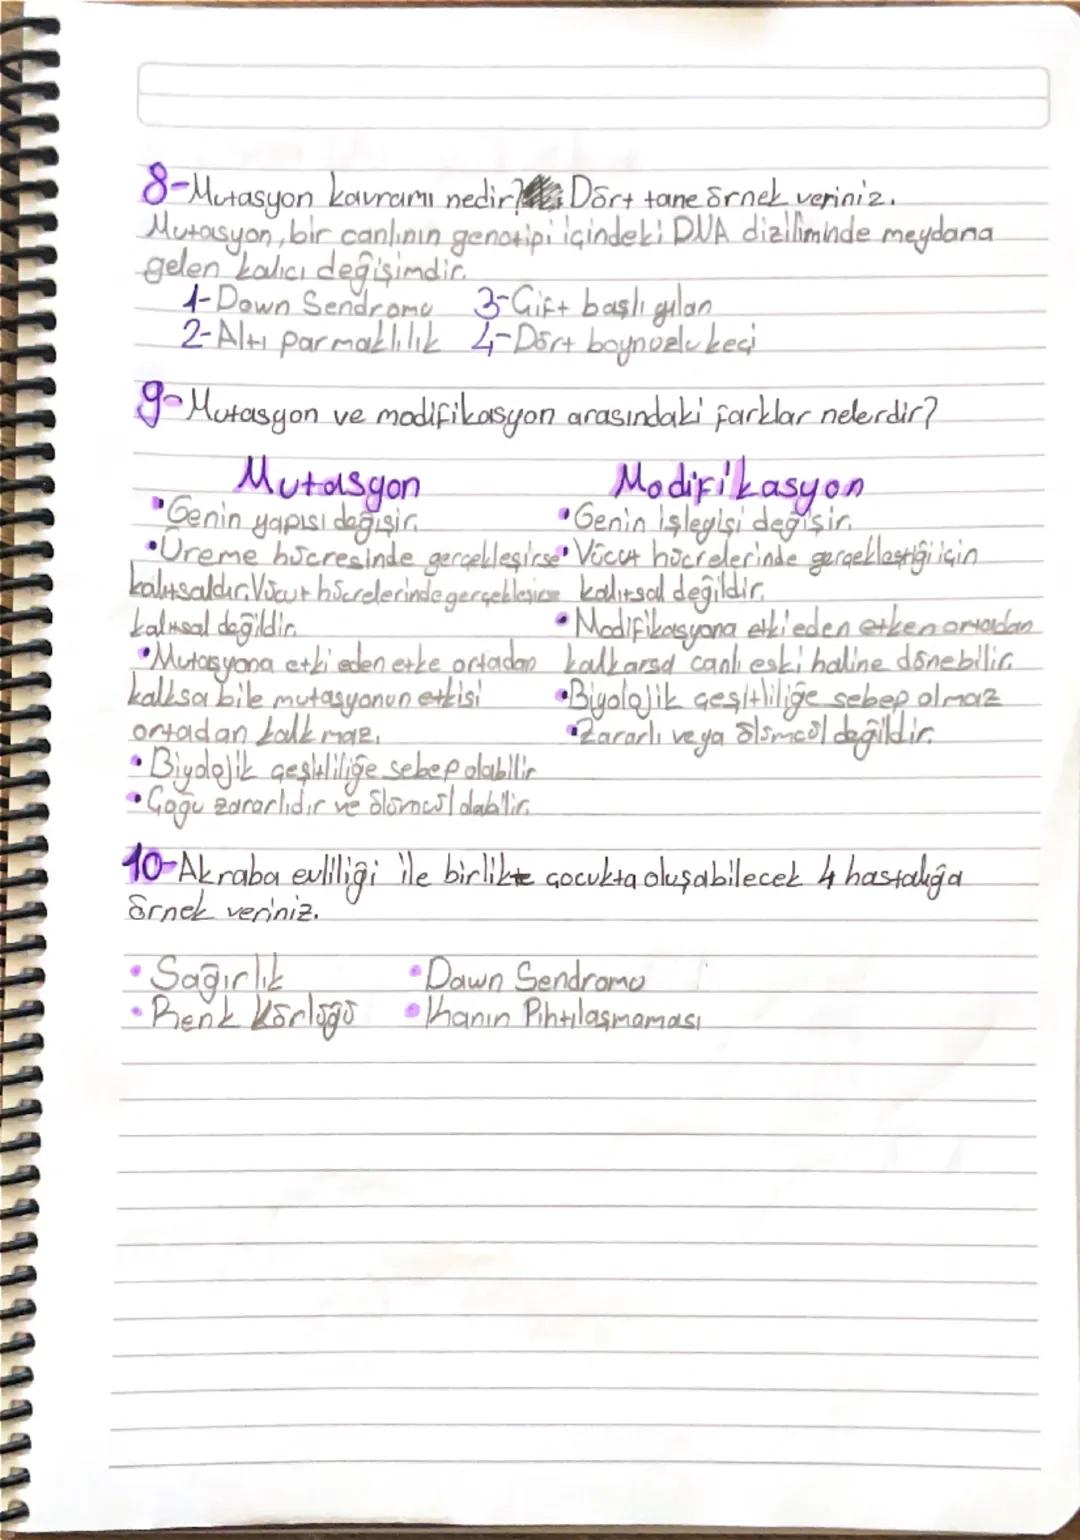 8-Mutasyon kavramı nedir? Dört tane örnek veriniz.
Mutasyon, bir canlının genotipi içindeki DNA diziliminde meydana
gelen kalıcı değişimdir.
1-Down Sendromu 3-Çift başlı yılan
2-Altı parmaklılık 4-Dört boynuzlu keçi
9-Mutasyon ve modifikasyon arasındaki farklar nelerdir?
Mutasyon
•Genin yapısı değişir.
•Üreme hücresinde gerçekleşirse
kalıtsaldır. Vücut hücrelerinde gerçekleşirse
kalıtsal değildir.
•Mutasyona etki eden etke ortadan
kalksa bile mutasyonun etkisi
ortadan kalkmaz.
•Biyolojik çeşitliliğe sebep olabilir
•Çoğu zararlıdır ve ölümcül olabilir.
Modifikasyon
•Genin işleyişi değişir.
•Vücut hücrelerinde gerçekleştiği için
kalıtsal değildir.
•Modifikasyona etki eden etken ortadan
kalkarsa canlı eski haline dönebilir.
•Biyolojik çeşitliliğe sebep olmaz
•Zararlı veya ölümcül değildir.
10-Akraba evliliği ile birlikte çocukta oluşabilecek 4 hastalığa
örnek veriniz.
•Sağırlık •Down Sendromu
•Renk Körlüğü •Kanın Pıhtılaşmaması